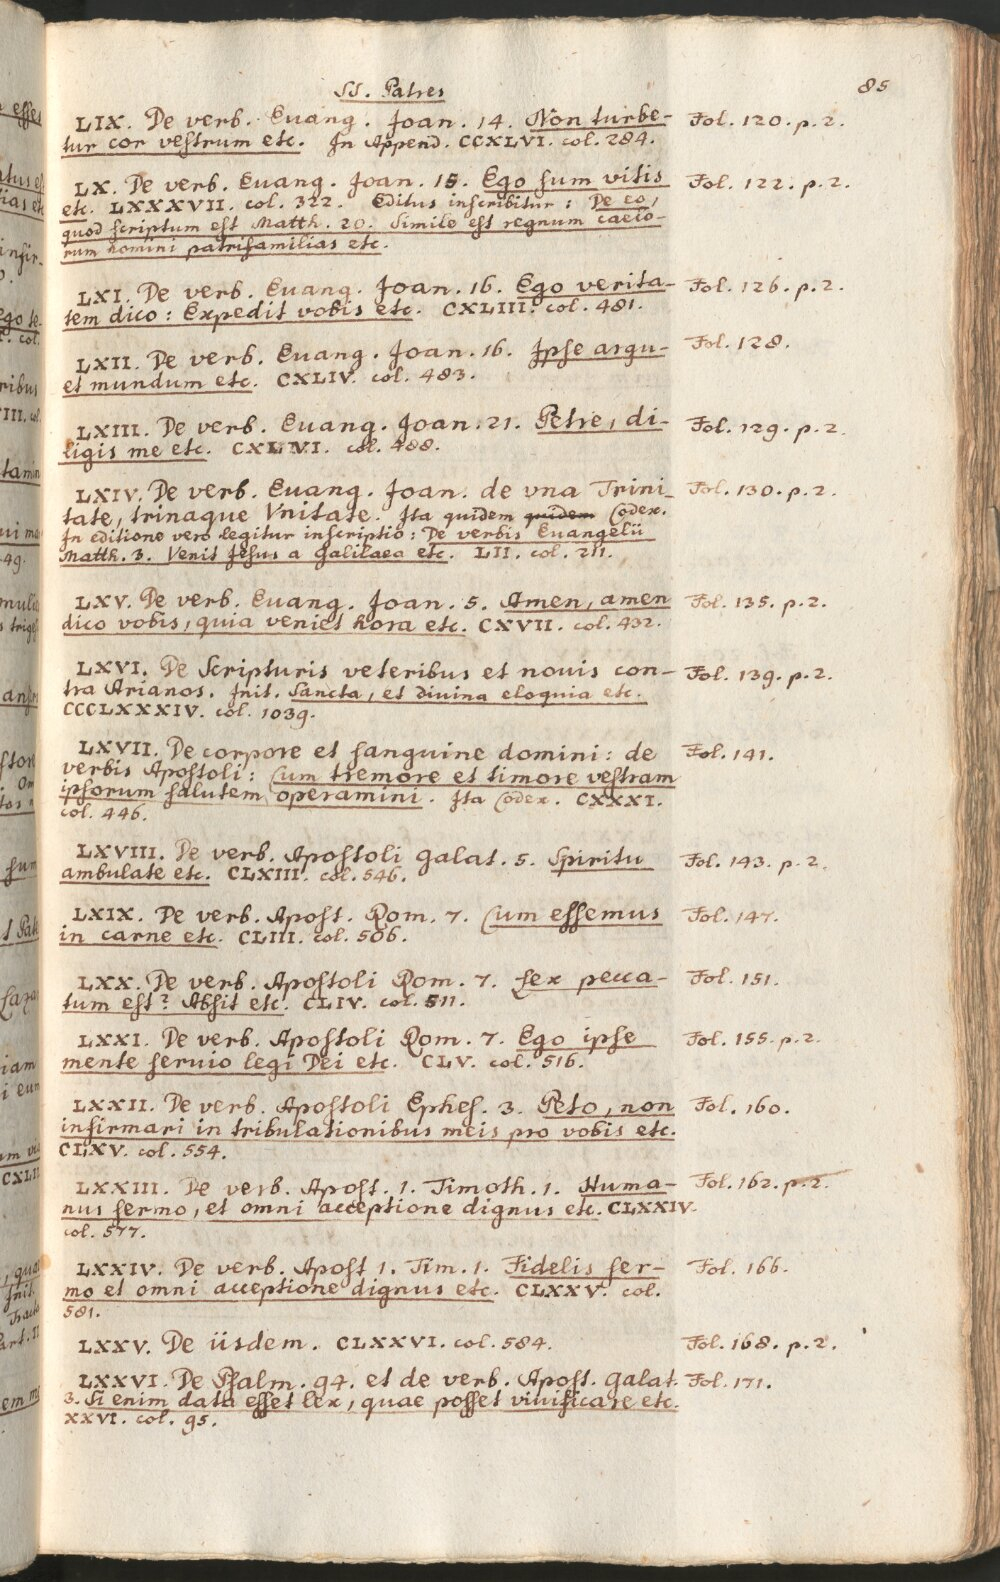 SS. Patres
85
LIX. De verb. Euang. Joan. 14. Non turbe- Fol. 120. p. 2.
tur cor vestrum etc. In Append. CCXLVI. col. 284.
LX. De verb. Euang. Joan. 15. Ego sum vitis Fol. 122. p. 2.
etc. LXXXVII. col. 322. Editus inscribitur: De eo,
quod scriptum est Matth. 20. Simile est regnum caelo-
rum homini patrifamilias etc.
LXI. De verb. Euang. Joan. 16. Ego verita- Fol. 126. p. 2.
tem dico: Expedit vobis etc. CXLIII. col. 481.
LXII. De verb. Euang. Joan. 16. Ipse argu- Fol. 128.
et mundum etc. CXLIV. col. 483.
LXIII. De verb. Euang. Joan. 21. Petre, di- Fol. 129. p. 2.
ligis me etc. CXLVI. col. 488.
LXIV. De verb. Euang. Joan. de vna Trini- Fol. 130. p. 2.
tate, trinaque Vnitate. Ita quidem quidem Codex.
In editione vero legitur inscriptio: De verbis Euangelii
Matth. 3. Venit Jesus a Galilaea etc. LII. col. 211.
LXV. De verb. Euang. Joan. 5. Amen, amen Fol. 135. p. 2.
dico vobis, quia veniet hora etc. CXVII. col. 432.
LXVI. De Scripturis veteribus et nouis con- Fol. 139. p. 2.
tra Arianos. Init. Sancta, et divina eloquia etc.
CCCLXXXIV. col. 1039.
LXVII. De corpore et sanguine domini: de Fol. 141.
verbis Apostoli: Cum tremore et timore vestram
ipsorum salutem operamini. Ita Codex. CXXXI.
col. 446.
LXVIII. De verb. Apostoli Galat. 5. Spiritu Fol. 143. p. 2.
ambulate etc. CLXIII. col. 546.
LXIX. De verb. Apost. Rom. 7. Cum essemus Fol. 147.
in carne etc. CLIII. col. 506.
LXX. De verb. Apostoli Rom. 7. Lex pecca- Fol. 151.
tum est? Absit etc. CLIV. col. 511.
LXXI. De verb. Apostoli Rom. 7. Ego ipse Fol. 155. p. 2.
mente seruio legi Dei etc. CLV. col. 516.
LXXII. De verb. Apostoli Ephes. 3. Peto, non Fol. 160.
infirmari in tribulationibus meis pro vobis etc.
CLXV. col. 554.
LXXIII. De verb. Apost. 1. Timoth. 1. Huma- Fol. 162. p. 2.
nus sermo, et omni acceptione dignus etc. CLXXIV.
col. 577.
LXXIV. De verb. Apost 1. Tim. 1. Fidelis ser- Fol. 166.
mo et omni acceptione dignus etc. CLXXV. col.
581.
LXXV. De iisdem. CLXXVI. col. 584. Fol. 168. p. 2.
LXXVI. De Psalm. 94. et de verb. Apost. Galat. Fol. 171.
3. Si enim data esset lex, quae posset viuificare etc.
XXVI. col. 95.